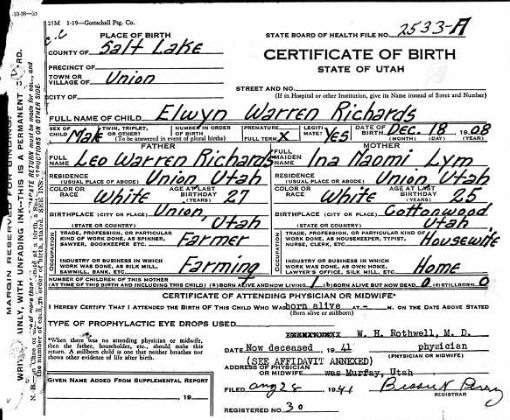 25M 1-19-Gottschall Ptg. Co.
STATE BOARD OF HEALTH FILE NO. 2533-A
PLACE OF BIRTH
COUNTY OF Salt Lake
CERTIFICATE OF BIRTH
STATE OF UTAH
PRECINCT OF
TOWN OR VILLAGE OF Union
STREET AND NO.
CITY OF
(If in Hospital or other Institution, give its Name instead of Street and Number)
FULL NAME OF CHILD Elwyn Warren Richards
SEX OF CHILD Male TWIN, TRIPLET, OR OTHER? NUMBER IN ORDER OF BIRTH PREMATURE FULL TERM X LEGITIMATE? Yes DATE OF BIRTH Dec. 18 1908
(To be answered in event of plural births) (MONTH) (DAY) (YEAR)
FATHER MOTHER
FULL NAME Leo Warren Richards FULL MAIDEN NAME Ina Naomi Lym
RESIDENCE (USUAL PLACE OF ABODE) Union Utah RESIDENCE (USUAL PLACE OF ABODE) Union, Utah
COLOR OR RACE White AGE AT LAST BIRTHDAY 27 (YEARS) COLOR OR RACE White AGE AT LAST BIRTHDAY 25 (YEARS)
BIRTHPLACE (CITY OR PLACE) Union, BIRTHPLACE (CITY OR PLACE) Cottonwood
(STATE OR COUNTRY) Utah (STATE OR COUNTRY) Utah
OCCUPATION TRADE, PROFESSION, OR PARTICULAR KIND OF WORK DONE, AS SPINNER, SAWYER, BOOKKEEPER, ETC. Farmer OCCUPATION TRADE, PROFESSION OR PARTICULAR KIND OF WORK DONE, AS HOUSEKEEPER, TYPIST, NURSE, CLERK, ETC. Housewife
INDUSTRY OR BUSINESS IN WHICH WORK WAS DONE, AS SILK MILL, SAWMILL, BANK, ETC. Farming INDUSTRY OR BUSINESS IN WHICH WORK WAS DONE, AS OWN HOME, LAWYER'S OFFICE, SILK MILL, ETC. Home
NUMBER OF CHILDREN OF THIS MOTHER
(AT TIME OF THIS BIRTH AND INCLUDING THIS CHILD) (A) BORN ALIVE AND NOW LIVING 1 (B) BORN ALIVE BUT NOW DEAD 0 (C) STILLBORN 0
CERTIFICATE OF ATTENDING PHYSICIAN OR MIDWIFE*
I HEREBY CERTIFY THAT I ATTENDED THE BIRTH OF THIS CHILD WHO WAS born alive AT - M. ON THE DATE ABOVE STATED
(Born alive or stillborn)
TYPE OF PROPHYLACTIC EYE DROPS USED
W. H. Rothwell, M. D.
*When there was no attending physician or midwife, then the father, householder, etc., should make this return. A stillborn child is one that neither breathes nor shows other evidence of life after birth.
DATE Now deceased 1941 physician
(PHYSICIAN OR MIDWIFE)
(SEE AFFIDAVIT ANNEXED)
ADDRESS OF PHYSICIAN OR MIDWIFE was Murray, Utah
GIVEN NAME ADDED FROM SUPPLEMENTAL REPORT
FILED Aug 28 1941
REGISTRAR
REGISTERED NO 30
MARGIN RESERVED FOR BINDING